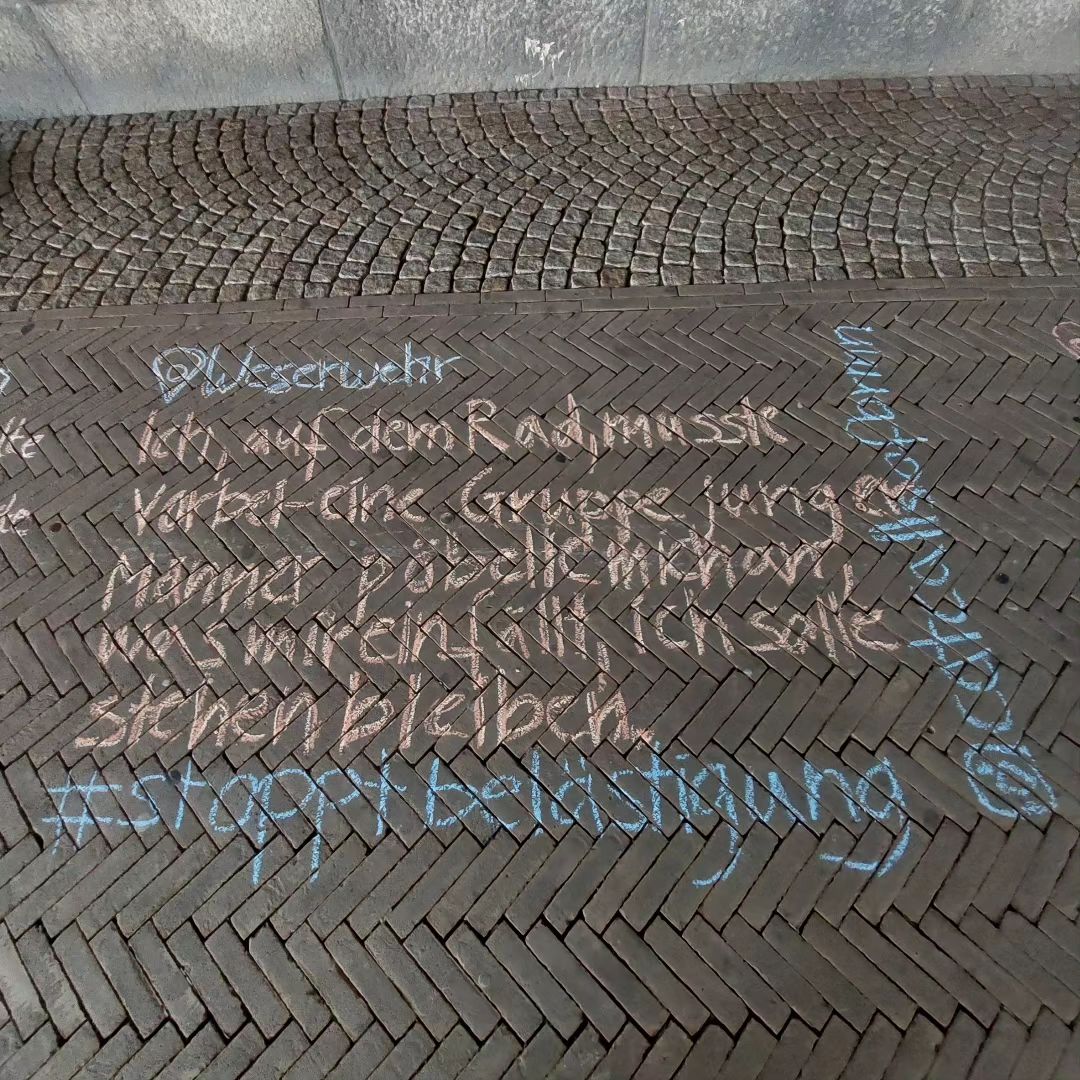 @Weserwehr
Ich, auf dem Rad, musste
vorbei-eine Gruppe junger
Männer pöbelte mich an,
was mir einfällt, ich solle
stehen bleiben.
#stopptbelästigung
@catcallsofbrmn